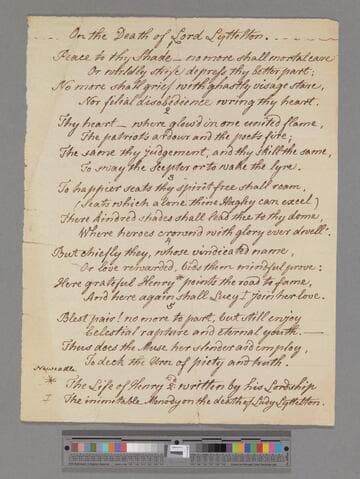 On the Death of Lord Lyttelton.
Peace to thy Shade — no more shall mortal care
Or worldly strife depress thy better part;
No more shall grief with ghastly visage stare,
Nor filial disobedience wring thy heart.
2
Thy heart — where glow'd in one united flame,
The patriots ardour and the poets fire;
The same thy judgement, and thy skill the same,
To sway the Scepter or to wake the lyre.
3
To happier seats thy spirit free shall roam,
(Seats which alone thine Hagley can excel)
There kindred shades shall lead thee to thy dome,
Where heroes crownd with glory ever dwell.
4
But chiefly they, whose vindicated name,
Or love rewarded, bids them mindful prove:
Here grateful Henry * points the road to fame,
And here again shall Lucy I join her love.
5
Blest pair! no more to part, but still enjoy
Celestial rapture and eternal youth. —
Thus does the Muse her slender aid employ,
To deck the Urn of piety and truth.
Newcastle
* The Life of Henry 2d written by his Lordship
I The inimitable Monody on the death of Lady Lyttelton.